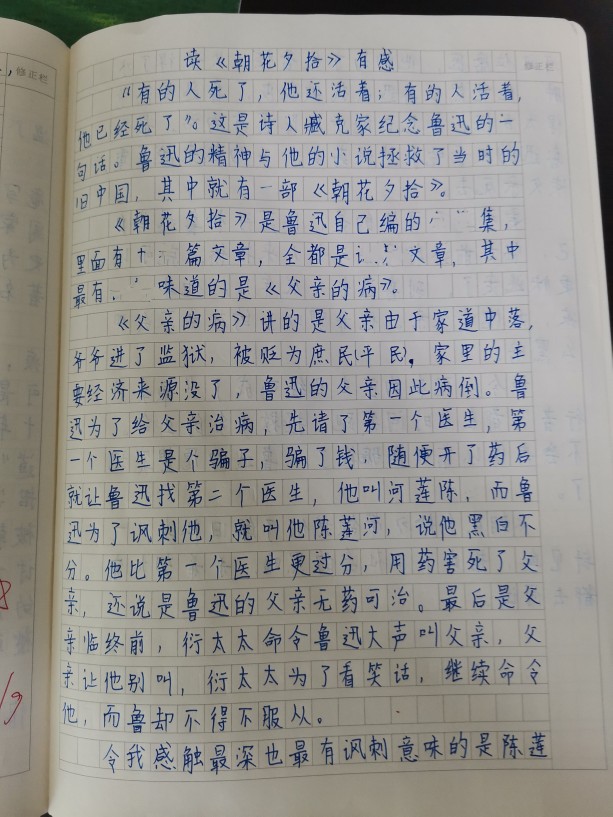 修正栏
修正栏
读《朝花夕拾》有感
“有的人死了，他还活着；有的人活着，
他已经死了”。这是诗人臧克家纪念鲁迅的一
句话。鲁迅的精神与他的小说拯救了当时的
旧中国，其中就有一部《朝花夕拾》。
《朝花夕拾》是鲁迅自己编的 集，
里面有十 篇文章，全都是 文章，其中
最有 味道的是《父亲的病》。
《父亲的病》讲的是父亲由于家道中落，
爷爷进了监狱，被贬为庶民(平民)，家里的主
要经济来源没了，鲁迅的父亲因此病倒。鲁
迅为了给父亲治病，先请了第一个医生，第
一个医生是个骗子，骗了钱，随便开了药后
就让鲁迅找第二个医生，他叫河莲陈，而鲁
迅为了讽刺他，就叫他陈莲河，说他黑白不
分。他比第一个医生更过分，用药害死了父
亲，还说是鲁迅的父亲无药可治。最后是父
亲临终前，衍太太命令鲁迅大声叫父亲，父
亲让他别叫，衍太太为了看笑话，继续命令
他，而鲁却不得不服从。
令我感触最深也最有讽刺意味的是陈莲